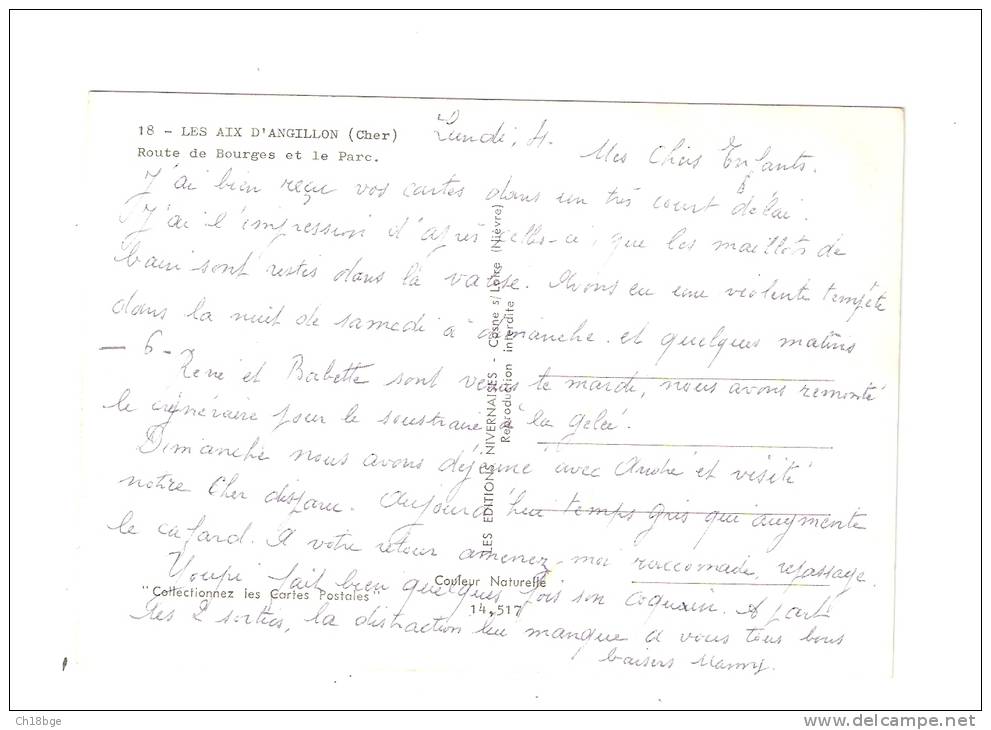 18 - LES AIX D'ANGILLON (Cher)
Route de Bourges et le Parc.
Lundi, 4.
Mes Chers Enfants.
J'ai bien reçu vos cartes dans un très court délai.
J'ai l'impression d'après celles-ci, que les maillots de
bain sont restés dans la valise. Avons eu une violente tempête
dans la nuit de samedi à dimanche. et quelques matins
- 6 - René et Babette sont venus le mardi, nous avons remonté
le cinéraire pour le soustraire à la gelée.
Dimanche nous avons déjeuné avec André et visité
notre Cher disparu. Aujourd'hui temps gris qui augmente
le cafard. A votre retour amenez moi raccomode, repassage.
Youpi fait bien quelques fois son coquin. A part
ses 2 sorties, la distraction lui manque à vous tous bons
baisers Mamy.
LES EDITIONS NIVERNAISES - Cosne s/Loire (Nièvre)
Reproduction interdite
"Collectionnez les Cartes Postales"
Couleur Naturelle
14,517
Ch18bge
www.delcampe.net